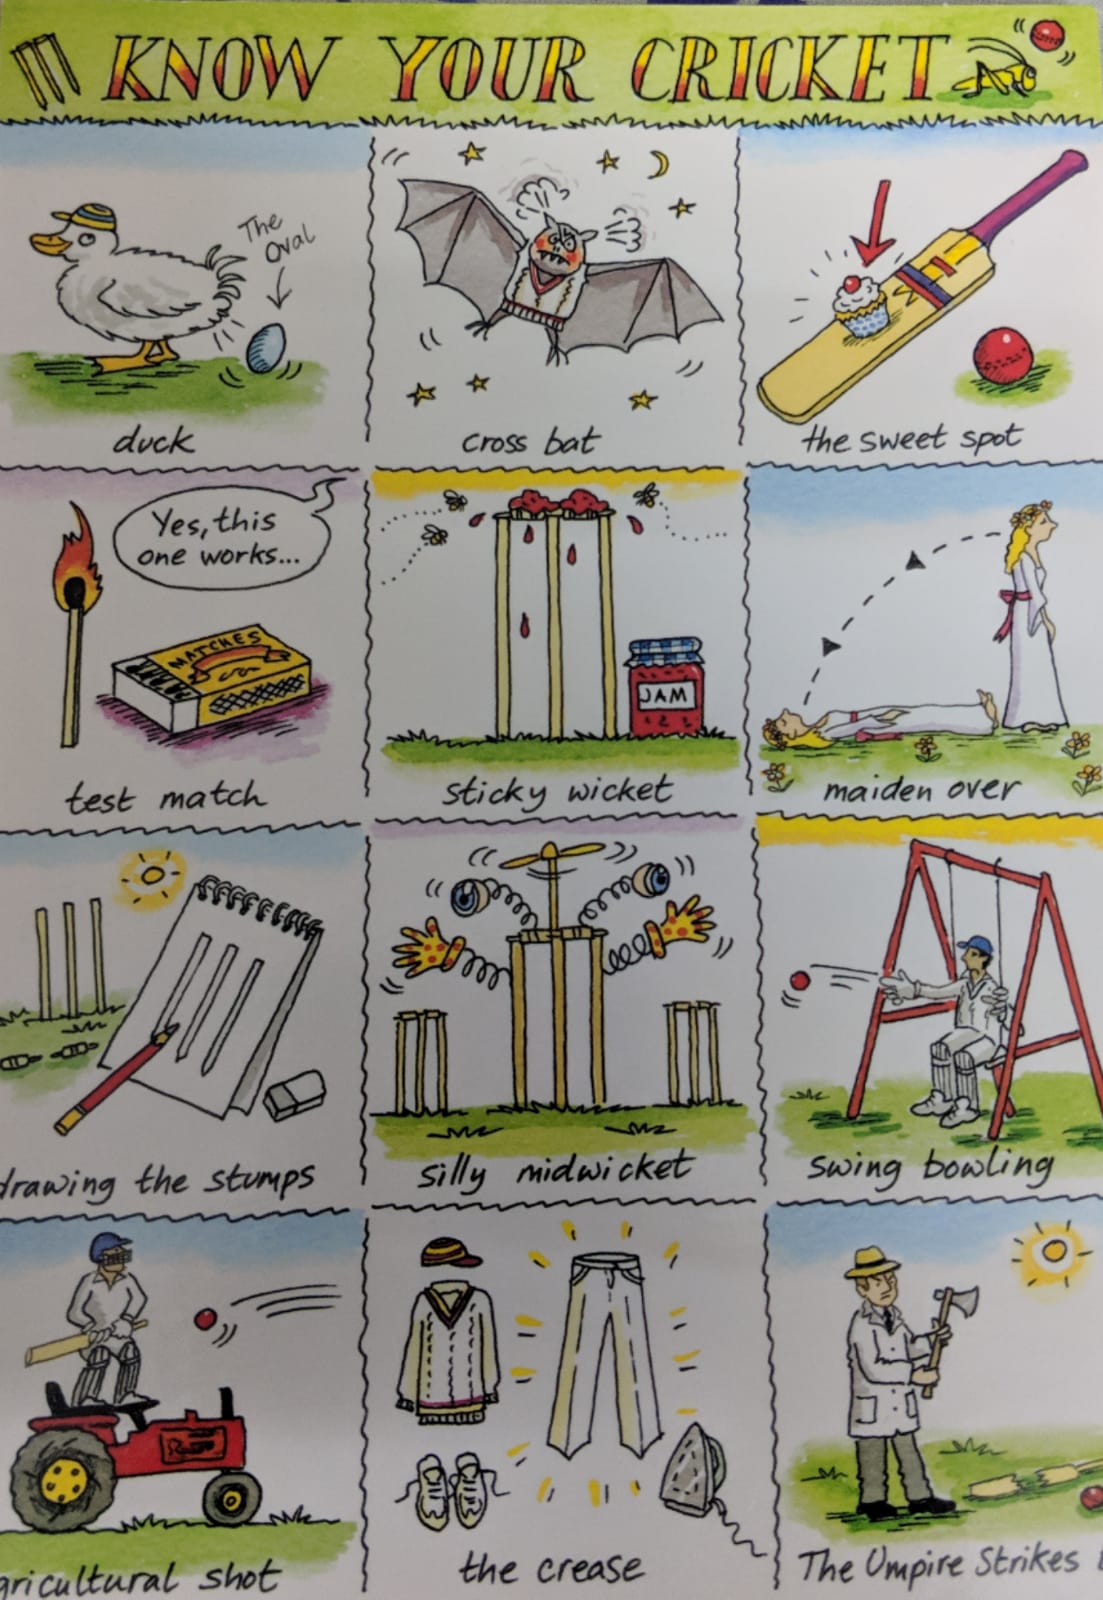 KNOW YOUR CRICKET
The
Oval
duck
cross bat
the sweet spot
Yes, this
one works...
MATCHES
test match
JAM
sticky wicket
maiden over
drawing the stumps
silly midwicket
swing bowling
gricultural shot
the crease
The Umpire Strikes